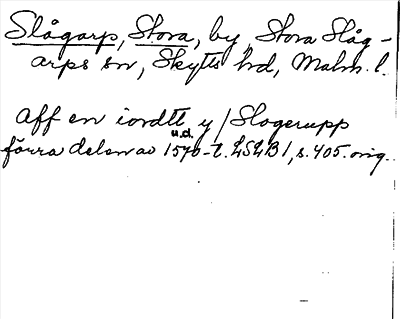 Slågarp, Stora, by, Stora Slåg-
arps sn, Skytts hd, Malm. l.
Aff en iordtt y / Slogerupp
u.d.
förra delen av 1570-t. LSLB 1, s. 405. orig.